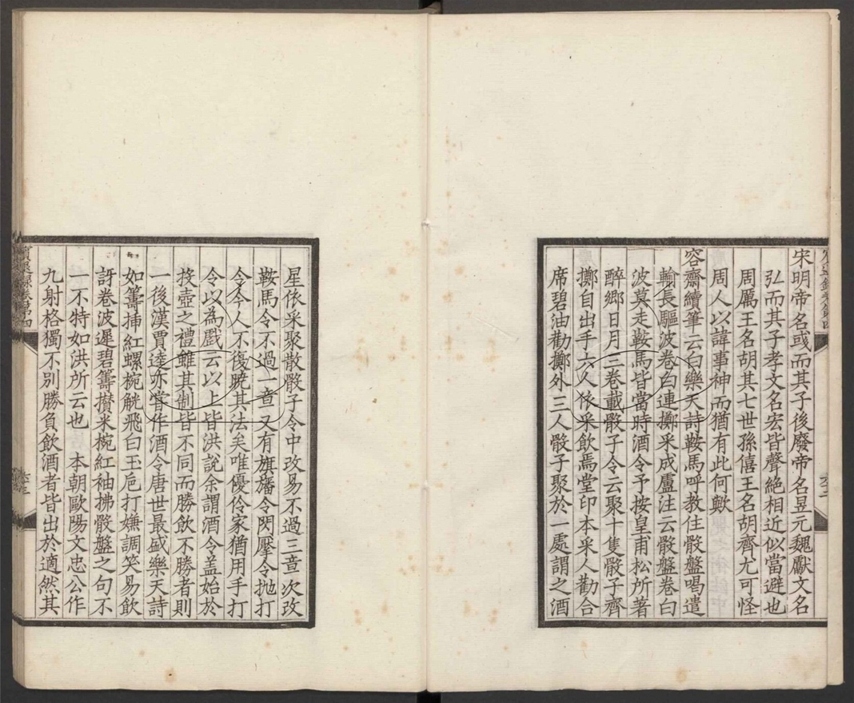 宋明帝名彧而其子後廢帝名昱元魏獻文名
弘而其子孝文名宏皆聲絶相近似當避也
周厲王名胡其七世孫僖王名胡齊尤可怪
周人以諱事神而猶有此何歟
容齋續筆云白樂天詩鞍馬呼教住骰盤喝遣
輸長驅波卷白連擲采成盧注云骰盤卷白
波莫走鞍馬皆當時酒令予按皇甫松所著
醉鄉日月三卷載骰子令云聚十隻骰子齊
擲自出手六人依采飲焉堂印本采人勸合
席碧油勸擲外三人骰子聚於一處謂之酒
星依采聚散骰子令中改易不過三章次改
鞍馬令不過一章又有旗旛令閃擪令抛打
令今人不復曉其法矣唯優伶家猶用手打
令以為戲云以上皆洪說余謂酒令盖始於
投壺之禮雖其制皆不同而勝飲不勝者則
一後漢賈逵亦嘗作酒令唐世最盛樂天詩
如籌插紅螺椀觥飛白玉巵打嫌調笑易飲
訝卷波遲碧籌攢米椀紅袖拂骰盤之句不
一不特如洪所云也　本朝歐陽文忠公作
九射格獨不别勝負飲酒者皆出於適然其